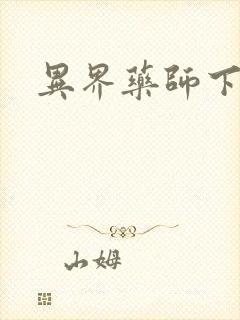 異界藥師下
山姆